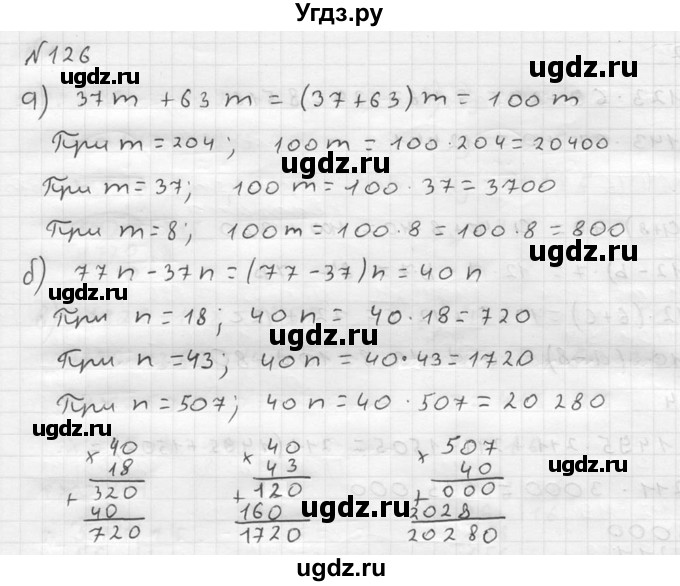 Угдз.ру
№126
а) 37m + 63m = (37+63)m = 100m
При m = 204; 100m = 100·204 = 20400
При m = 37; 100m = 100·37 = 3700
При m = 8; 100m = 100·8 = 100·8 = 800
б) 77n - 37n = (77-37)n = 40n
При n = 18; 40n = 40·18 = 720
При n = 43; 40n = 40·43 = 1720
При n = 507; 40n = 40·507 = 20 280
× 40 × 40 × 507
18 43 40
+ 320 + 120 + 000
40 160 2028
720 1720 20280
ugdz.ru
ugdz.ru
ugdz.ru
ugdz.ru
ugdz.ru
ugdz.ru
ugdz.ru
ugdz.ru
ugdz.ru
ugdz.ru
ugdz.ru